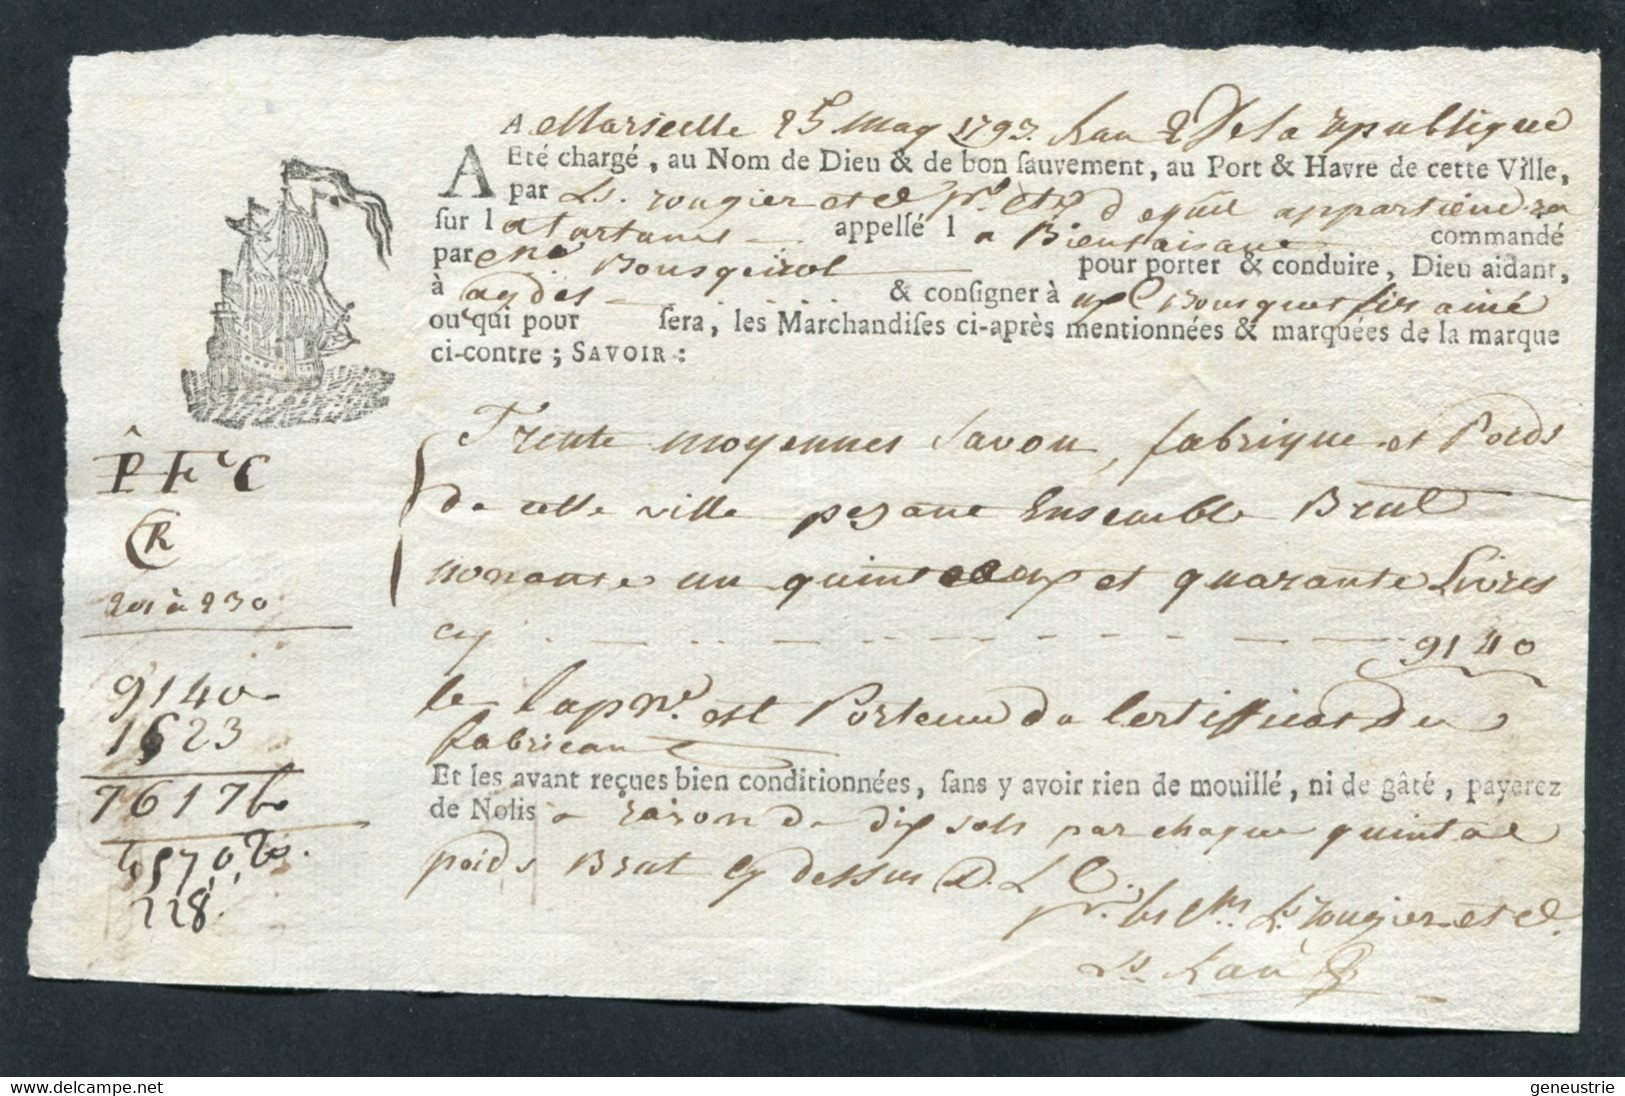 A Marseille 25 may 1793. L'an 2 De la republique
A Eté chargé, au Nom de Dieu & de bon sauvement, au Port & Havre de cette Ville,
par Ls. rougier et Ce pr. Cte d qu'il appartiendra
sur la tartane appellé la Bienfaisante commandé
par Bousqueirol pour porter & conduire, Dieu aidant,
à agde & consigner à Bousquet fils ainé
ou qui pour sera, les Marchandises ci-après mentionnées & marquées de la marque
ci-contre; SAVOIR:
Trente moyennes Savon, fabrique et Poids
de cette ville pezant Ensemble Brut
nonante un quintaux et quarante Livres
cy 9140
le Cap.ne est Porteur du Certifficat Du
fabricant
Et les avant reçues bien conditionnées, sans y avoir rien de mouillé, ni de gâté, payerez
de Nolis a raison de dix sols par chaque quintal
poids Brut cy dessus D. L C.
Ls rougier et Ce.
P F C
R
201 à 230
9140
1523
7617 lb
228
delcampe.net
geneustrie